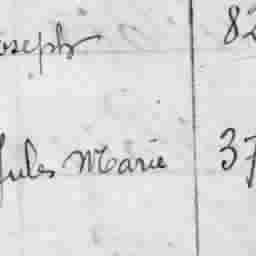 oseph 82
Jules Marie 37